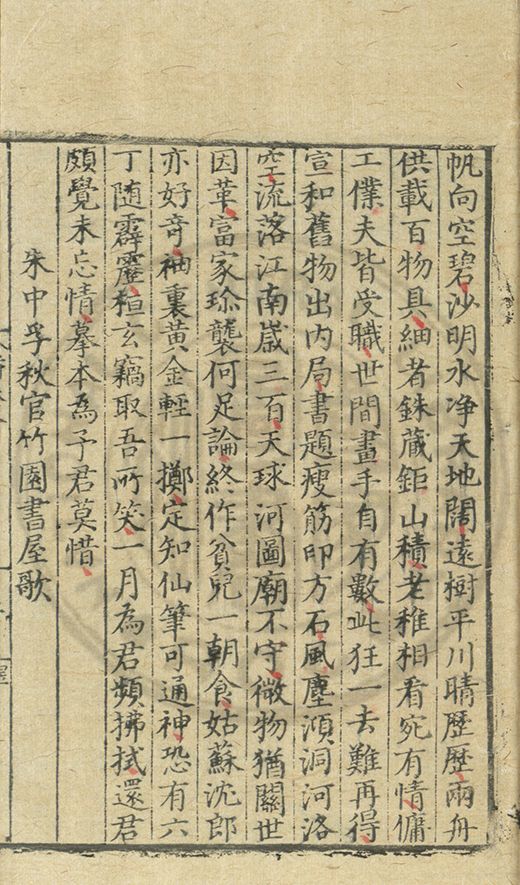 帆向空碧沙明水净天地闊遠樹平川晴歷歷兩舟
供載百物具細者銖蔵鉅山積老稚相看宛有情傭
工僕夫皆受職世間畫手自有數此狂一去難再得
宣和舊物出内局書題瘦筋印方石風塵澒洞河洛
空流落江南歳三百天球河圖廟不守微物猶關世
因革富家珎襲何足論終作貧兒一朝食姑蘇沈郎
亦好竒袖裏黄金輕一擲定知仙筆可通神恐有六
丁随霹靂桓玄竊取吾所笑一月為君頻拂拭還君
頗覺未忘情摹本為予君莫惜
朱中孚秋官竹園書屋歌